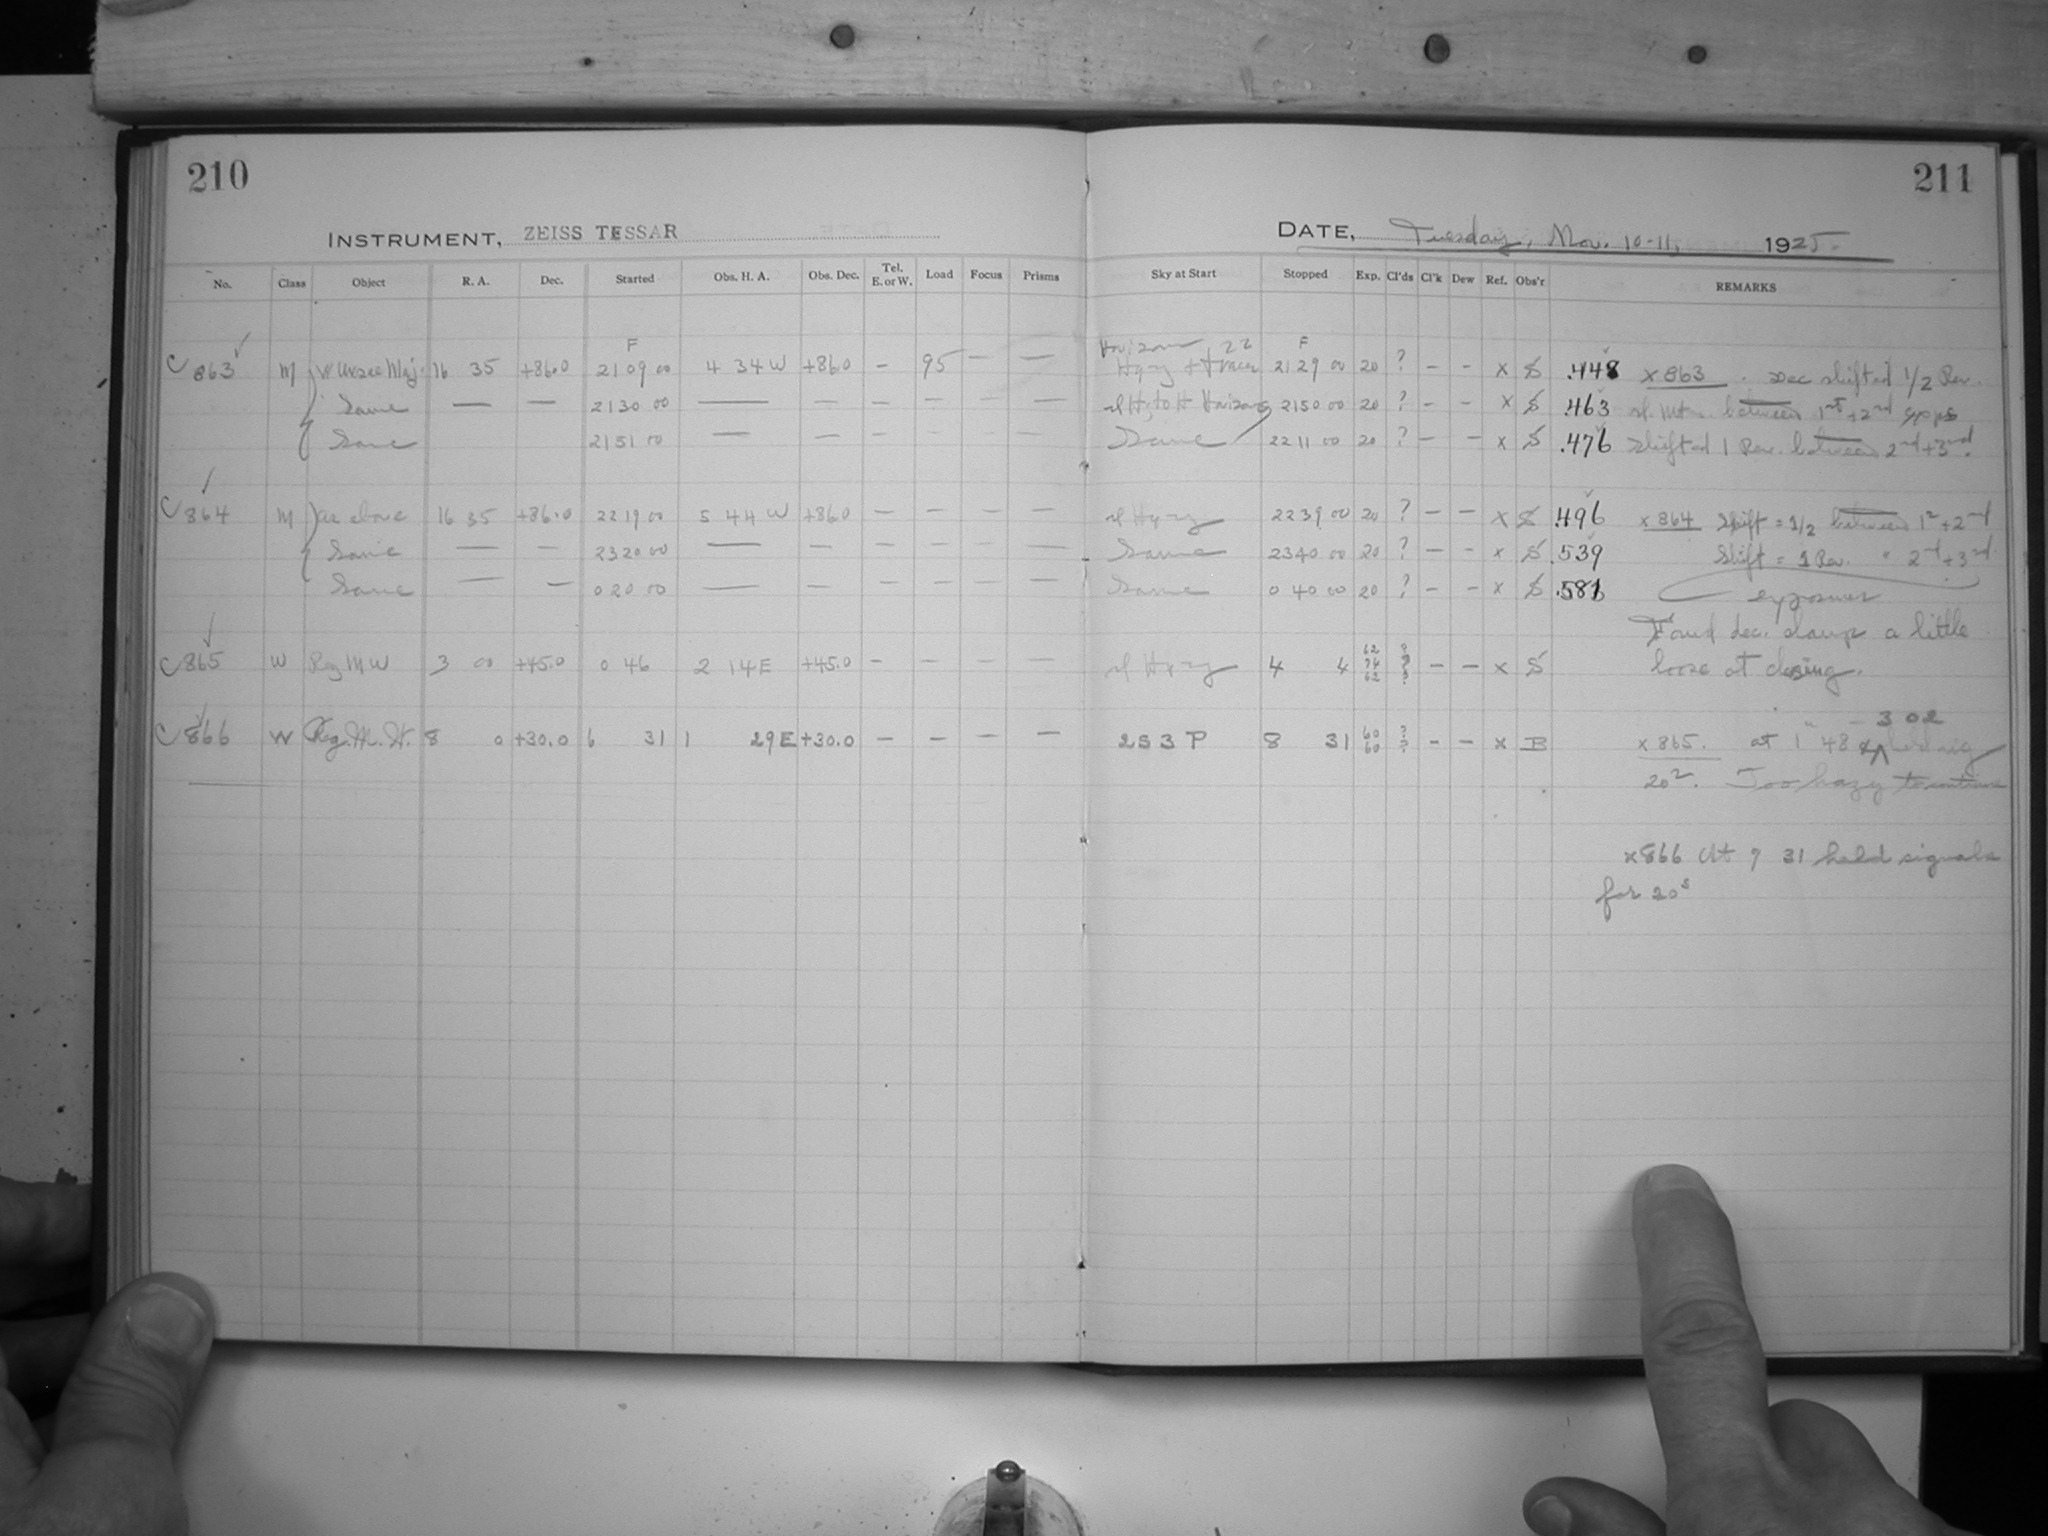 210
INSTRUMENT, ZEISS TESSAR
No. Class Object R. A. Dec. Started Obs. H. A. Obs. Dec. Tel. E. or W. Load Focus Prisms
F
C 863 ✓ M Ursae Maj. 16 35 +86.0 21 09 00 4 34 W +86.0 – 95 – –
Same — — 21 30 00 — — – – – –
Same 21 51 00 — — – – – –
C 864 ✓ M as above 16 35 +86.0 22 19 00 5 44 W +86.0 – – – –
Same — — 23 20 00 — — – – – –
Same — — 0 20 00 — — – – – –
C 865 ✓ W Reg MW 3 00 +45.0 0 46 2 14 E +45.0 – – – –
C 866 ✓ W Reg. M. W. 8 0 +30.0 6 31 1 29 E +30.0 – – – –
211
DATE, Tuesday, Nov. 10-11, 1925.
Sky at Start Stopped Exp. Cl'ds Cl'k Dew Ref. Obs'r REMARKS
Horizon 22 F
Hazy + 21 29 00 20 ? – – x S .448 x 863. Dec shifted 1/2 Rev.
Horizon 21 50 00 20 ? – – x S .463 between 1st + 2nd exps
Same 22 11 00 20 ? – – x S .476 Shifted 1 Rev. between 2nd + 3rd.
sl Hazy 22 39 00 20 ? – – x S .496 x 864 Shift = 1/2 between 1st + 2nd
Same 23 40 00 20 ? – – x S .539 Shift = 1 Rev. " 2nd + 3rd
Same 0 40 00 20 ? – – x S .581 exposures
Found dec. clamp a little
sl Hazy 4 4 62 74 62 ? ? ? – – x S loose at closing.
3 02
2 S 3 P 8 31 60 60 ? ? – – x B x 865. at 1 48 & held sig
20s. Too hazy to continue
x 866 At 7 31 held signals
for 20s